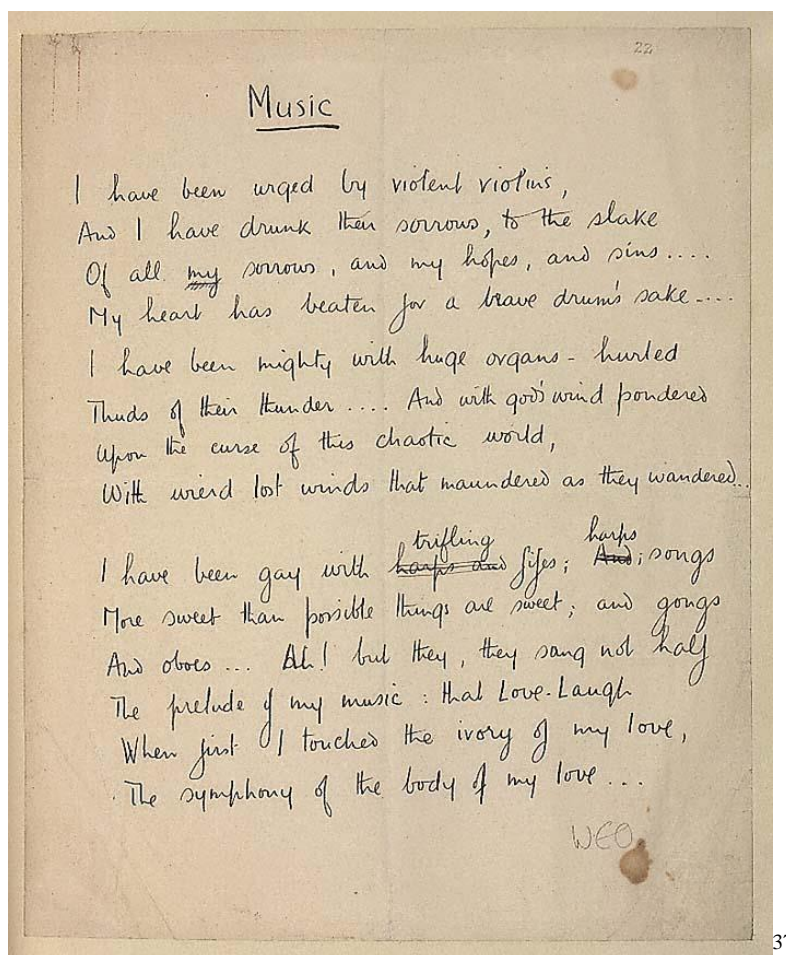 22
Music
I have been urged by violent violins,
And I have drunk their sorrows, to the slake
Of all my sorrows, and my hopes, and sins....
My heart has beaten for a brave drum's sake....
I have been mighty with huge organs - hurled
Thuds of their thunder.... And with god's wind pondered
Upon the curse of this chaotic world,
With wierd lost winds that maundered as they wandered...
trifling harps
I have been gay with harps and fifes; And; songs
More sweet than possible things are sweet; and gongs
And oboes... Ah! but they, they sang not half
The prelude of my music: that Love-Laugh
When first I touched the ivory of my love,
The symphony of the body of my love...
WEO.
37